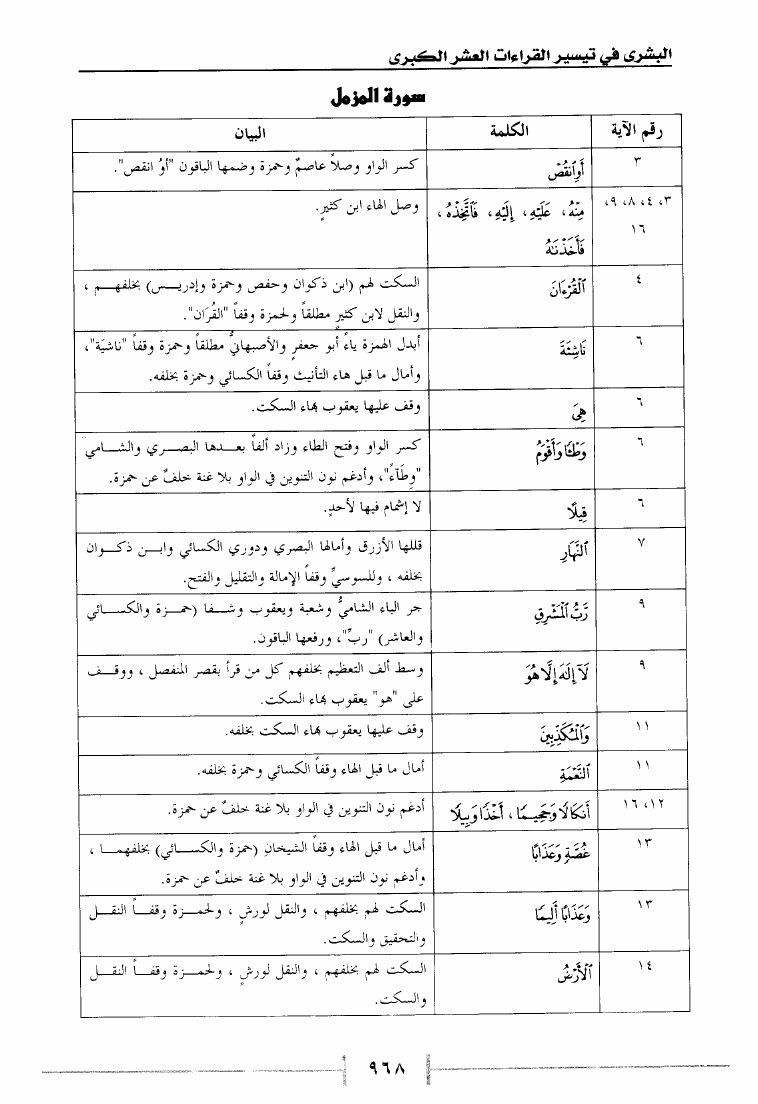 البشرى في تيسير القراءات العشر الكبرى
سورة المزمل
رقم الآية الكلمة البيان
٣ أَوِٱنقُصْ كسر الواو وصلاً عاصمٌ وحمزة وضمها الباقون "أوُ انقص".
٣، ٤، ٨، ٩، مِنْهُ، عَلَيْهِ، إِلَيْهِ، فَٱتَّخِذْهُ، وصل الهاء ابن كثيرٍ.
١٦ فَأَخَذْنَـٰهُ
٤ ٱلْقُرْءَانَ السكت لهم (ابن ذكوان وحفص وحمزة وإدريـــس) بخلفهـــم ،
والنقل لابن كثيرٍ مطلقاً ولحمزة وقفاً "القُرَان".
٦ نَاشِئَةَ أبدل الهمزة ياءً أبو جعفرٍ والأصبهانيُّ مطلقاً وحمزة وقفاً "ناشيَة"،
وأمال ما قبل هاء التأنيث وقفاً الكسائي وحمزة بخلفه.
٦ هِىَ وقف عليها يعقوب بهاء السكت.
٦ وَطْـًٔا وَأَقْوَمُ كسر الواو وفتح الطاء وزاد ألفاً بعـــدها البصـــري والشـــامي
"وِطَآءً"، وأدغم نون التنوين في الواو بلا غنة خلفٌ عن حمزة.
٦ قِيلًا لا إشمام فيها لأحدٍ.
٧ ٱلنَّهَارِ قللها الأزرق وأمالها البصري ودوري الكسائي وابـــن ذكـــوان
بخلفه ، وللسوسيِّ وقفاً الإمالة والتقليل والفتح.
٩ رَّبُّ ٱلْمَشْرِقِ جر الباء الشاميُّ وشعبة ويعقوب وشـــفا (حمـــزة والكســـائي
والعاشر) "ربِّ"، ورفعها الباقون.
٩ لَآ إِلَـٰهَ إِلَّا هُوَ وسط ألف التعظيم بخلفهم كل من قرأ بقصر المنفصل ، ووقـــف
على "هو" يعقوب بهاء السكت.
١١ وَٱلْمُكَذِّبِينَ وقف عليها يعقوب بهاء السكت بخلفه.
١١ ٱلنَّعْمَةِ أمال ما قبل الهاء وقفاً الكسائي وحمزة بخلفه.
١٢، ١٦ أَنكَالًا وَجَحِيمًا، أَخْذًا وَبِيلًا أدغم نون التنوين في الواو بلا غنة خلفٌ عن حمزة.
١٣ غُصَّةٍ وَعَذَابًا أمال ما قبل الهاء وقفاً الشيخان (حمزة والكســـائي) بخلفهمـــا ،
وأدغم نون التنوين في الواو بلا غنة خلفٌ عن حمزة.
١٣ وَعَذَابًا أَلِيمًا السكت لهم بخلفهم ، والنقل لورشٍ ، ولحمـــزة وقفـــاً النقـــل
والتحقيق والسكت.
١٤ ٱلْأَرْضُ السكت لهم بخلفهم ، والنقل لورشٍ ، ولحمـــزة وقفـــاً النقـــل
والسكت.
٩٦٨